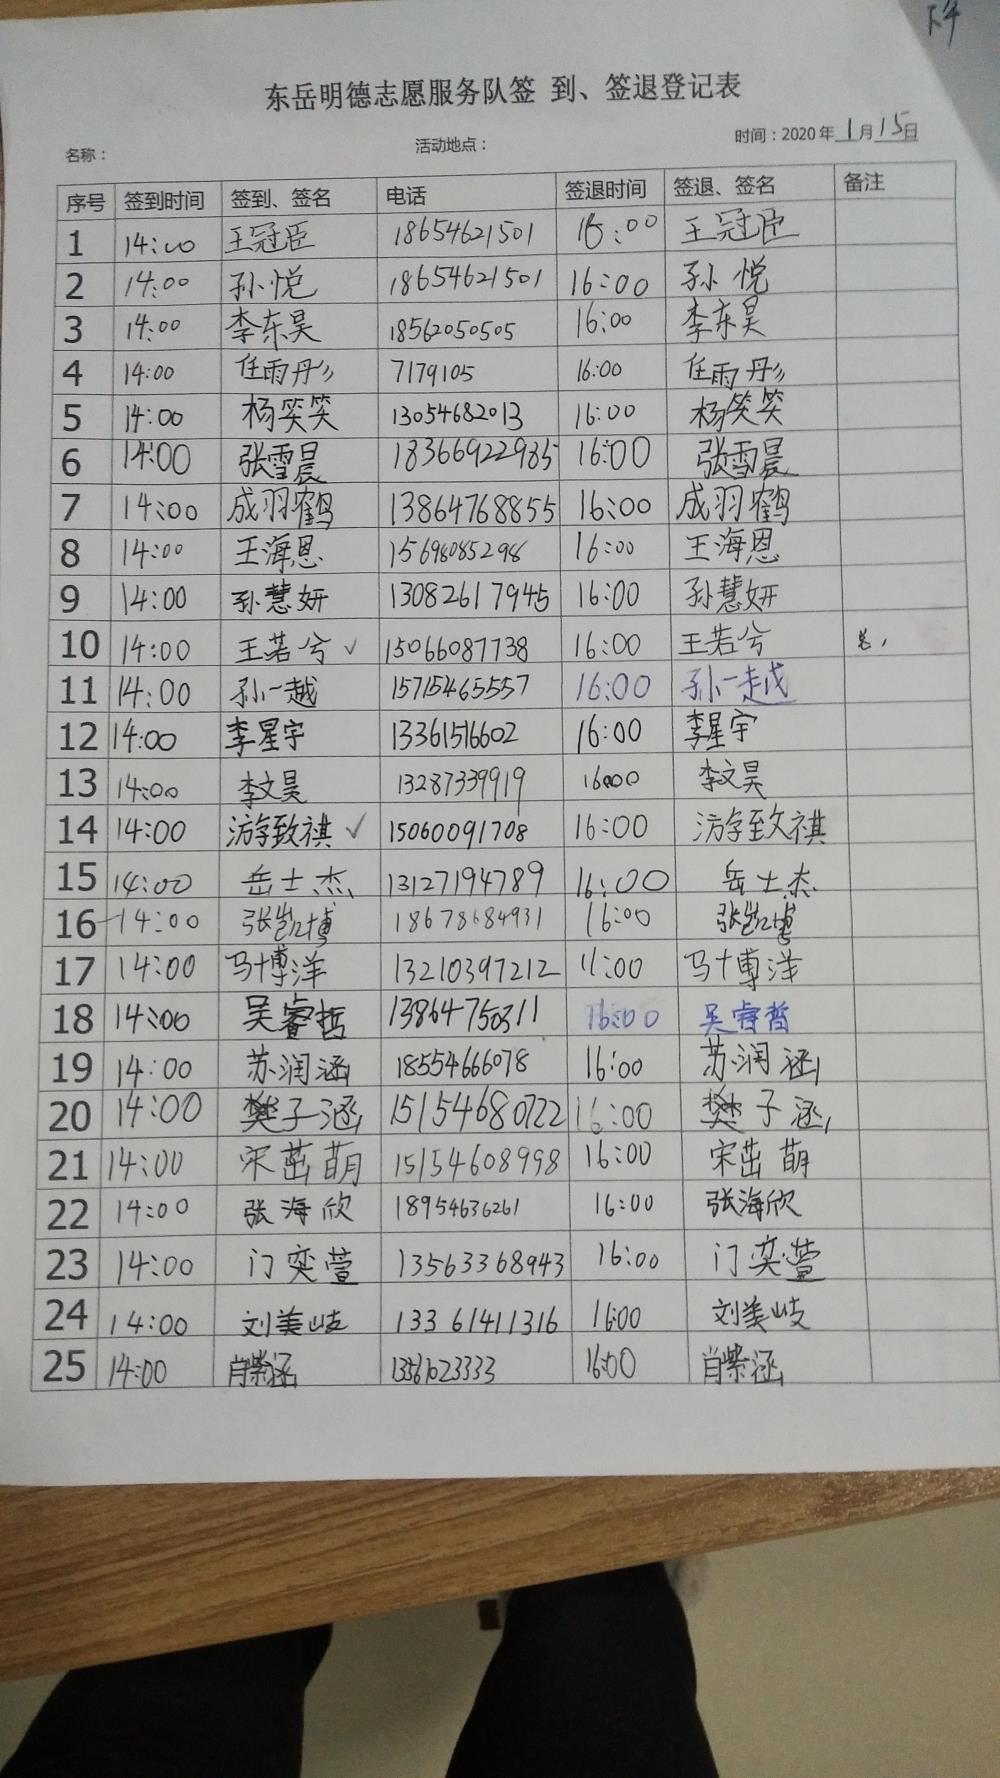 下午
东岳明德志愿服务队签 到、签退登记表
名称： 活动地点： 时间：2020年1月15日
序号 签到时间 签到、签名 电话 签退时间 签退、签名 备注
1 14:00 王冠臣 18654621501 16:00 王冠臣
2 14:00 孙悦 18654621501 16:00 孙悦
3 14:00 李东昊 18562050505 16:00 李东昊
4 14:00 任雨彤 7179105 16:00 任雨彤
5 14:00 杨笑笑 13054682013 16:00 杨笑笑
6 14:00 张雪晨 18366922985 16:00 张雪晨
7 14:00 成羽鹤 13864768855 16:00 成羽鹤
8 14:00 王海恩 15698085298 16:00 王海恩
9 14:00 孙慧妍 13082617945 16:00 孙慧妍
10 14:00 王若兮 ✓ 15066087738 16:00 王若兮
11 14:00 孙一越 15715465557 16:00 孙一越
12 14:00 李星宇 13361516602 16:00 李星宇
13 14:00 李文昊 13287339919 16:00 李文昊
14 14:00 游致祺 ✓ 15060091708 16:00 游致祺
15 14:00 岳士杰 13127194789 16:00 岳士杰
16 14:00 张凯博 18678684931 16:00 张凯博
17 14:00 马博洋 13210397212 16:00 马博洋
18 14:00 吴睿哲 13864750311 16:00 吴睿哲
19 14:00 苏润涵 18554666078 16:00 苏润涵
20 14:00 樊子涵 15154680722 16:00 樊子涵
21 14:00 宋茁萌 15154608998 16:00 宋茁萌
22 14:00 张海欣 18954636261 16:00 张海欣
23 14:00 门奕萱 13563368943 16:00 门奕萱
24 14:00 刘美岐 13361411316 16:00 刘美岐
25 14:00 肖紫涵 13561023333 16:00 肖紫涵